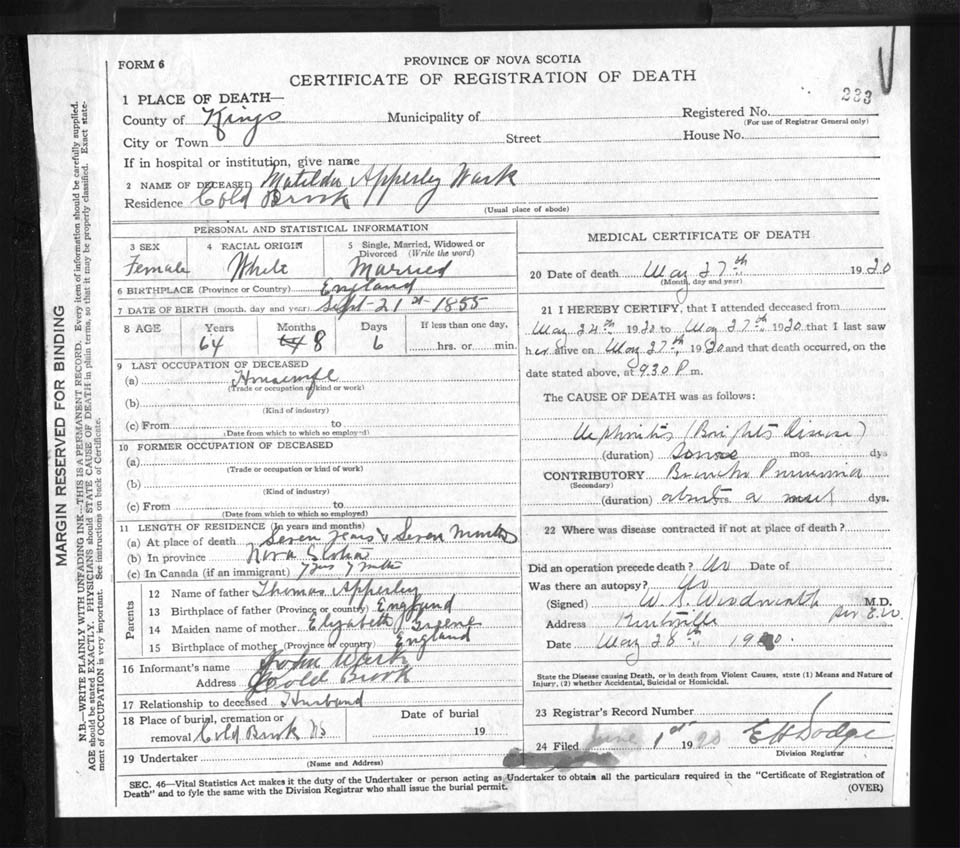 FORM 6
PROVINCE OF NOVA SCOTIA
CERTIFICATE OF REGISTRATION OF DEATH
283
1 PLACE OF DEATH—
County of Kings Municipality of Registered No.
(For use of Registrar General only)
City or Town Street House No.
If in hospital or institution, give name
2 NAME OF DECEASED Matilda Apperley Wark
Residence Cold Brook
(Usual place of abode)
PERSONAL AND STATISTICAL INFORMATION
3 SEX 4 RACIAL ORIGIN 5 Single, Married, Widowed or Divorced (Write the word)
Female White Married
6 BIRTHPLACE (Province or Country) England
7 DATE OF BIRTH (month, day and year) Sept-21st-1855
8 AGE Years Months Days If less than one day,
64 64 8 6 hrs. or min.
9 LAST OCCUPATION OF DECEASED
(a) Housewife
(Trade or occupation or kind of work)
(b)
(Kind of industry)
(c) From to
(Date from which to which so employed)
10 FORMER OCCUPATION OF DECEASED
(a)
(Trade or occupation or kind of work)
(b)
(Kind of industry)
(c) From to
(Date from which to which so employed)
11 LENGTH OF RESIDENCE (In years and months)
(a) At place of death Seven Years & Seven Months
(b) In province Nova Scotia
(c) In Canada (if an immigrant) 7 yrs 7 mths
Parents
12 Name of father Thomas Apperley
13 Birthplace of father (Province or country) England
14 Maiden name of mother Elizabeth Greene
15 Birthplace of mother (Province or country) England
16 Informant's name John Wark
Address Cold Brook
17 Relationship to deceased Husband
18 Place of burial, cremation or removal Cold Brook NS Date of burial 19
19 Undertaker
(Name and Address)
MEDICAL CERTIFICATE OF DEATH
20 Date of death May 27th 1920
(Month, day and year)
21 I HEREBY CERTIFY, that I attended deceased from
May 24th 1920 to May 27th 1920 that I last saw
her alive on May 27th, 1920 and that death occurred, on the
date stated above, at 9.30 P.m.
The CAUSE OF DEATH was as follows:
Nephritis (Brights Disease)
(duration) mos. dys
CONTRIBUTORY Broncho Pneumonia
(Secondary)
(duration) about yrs. a dys.
22 Where was disease contracted if not at place of death?
Did an operation precede death? No Date of
Was there an autopsy? No
(Signed) W. S. Woodworth M.D.
per E.W.
Address Kentville
Date May 28th 1920.
State the Disease causing Death, or in death from Violent Causes, state (1) Means and Nature of
Injury, (2) whether Accidental, Suicidal or Homicidal.
23 Registrar's Record Number
24 Filed June 1st 1920 E H Dodge
Division Registrar
SEC. 46—Vital Statistics Act makes it the duty of the Undertaker or person acting as Undertaker to obtain all the particulars required in the "Certificate of Registration of
Death" and to fyle the same with the Division Registrar who shall issue the burial permit.
(OVER)
MARGIN RESERVED FOR BINDING
N.B.—WRITE PLAINLY WITH UNFADING INK—THIS IS A PERMANENT RECORD. Every item of information should be carefully supplied.
AGE should be stated EXACTLY. PHYSICIANS should STATE CAUSE OF DEATH in plain terms, so that it may be properly classified. Exact state-
ment of OCCUPATION is very important. See instructions on back of Certificate.